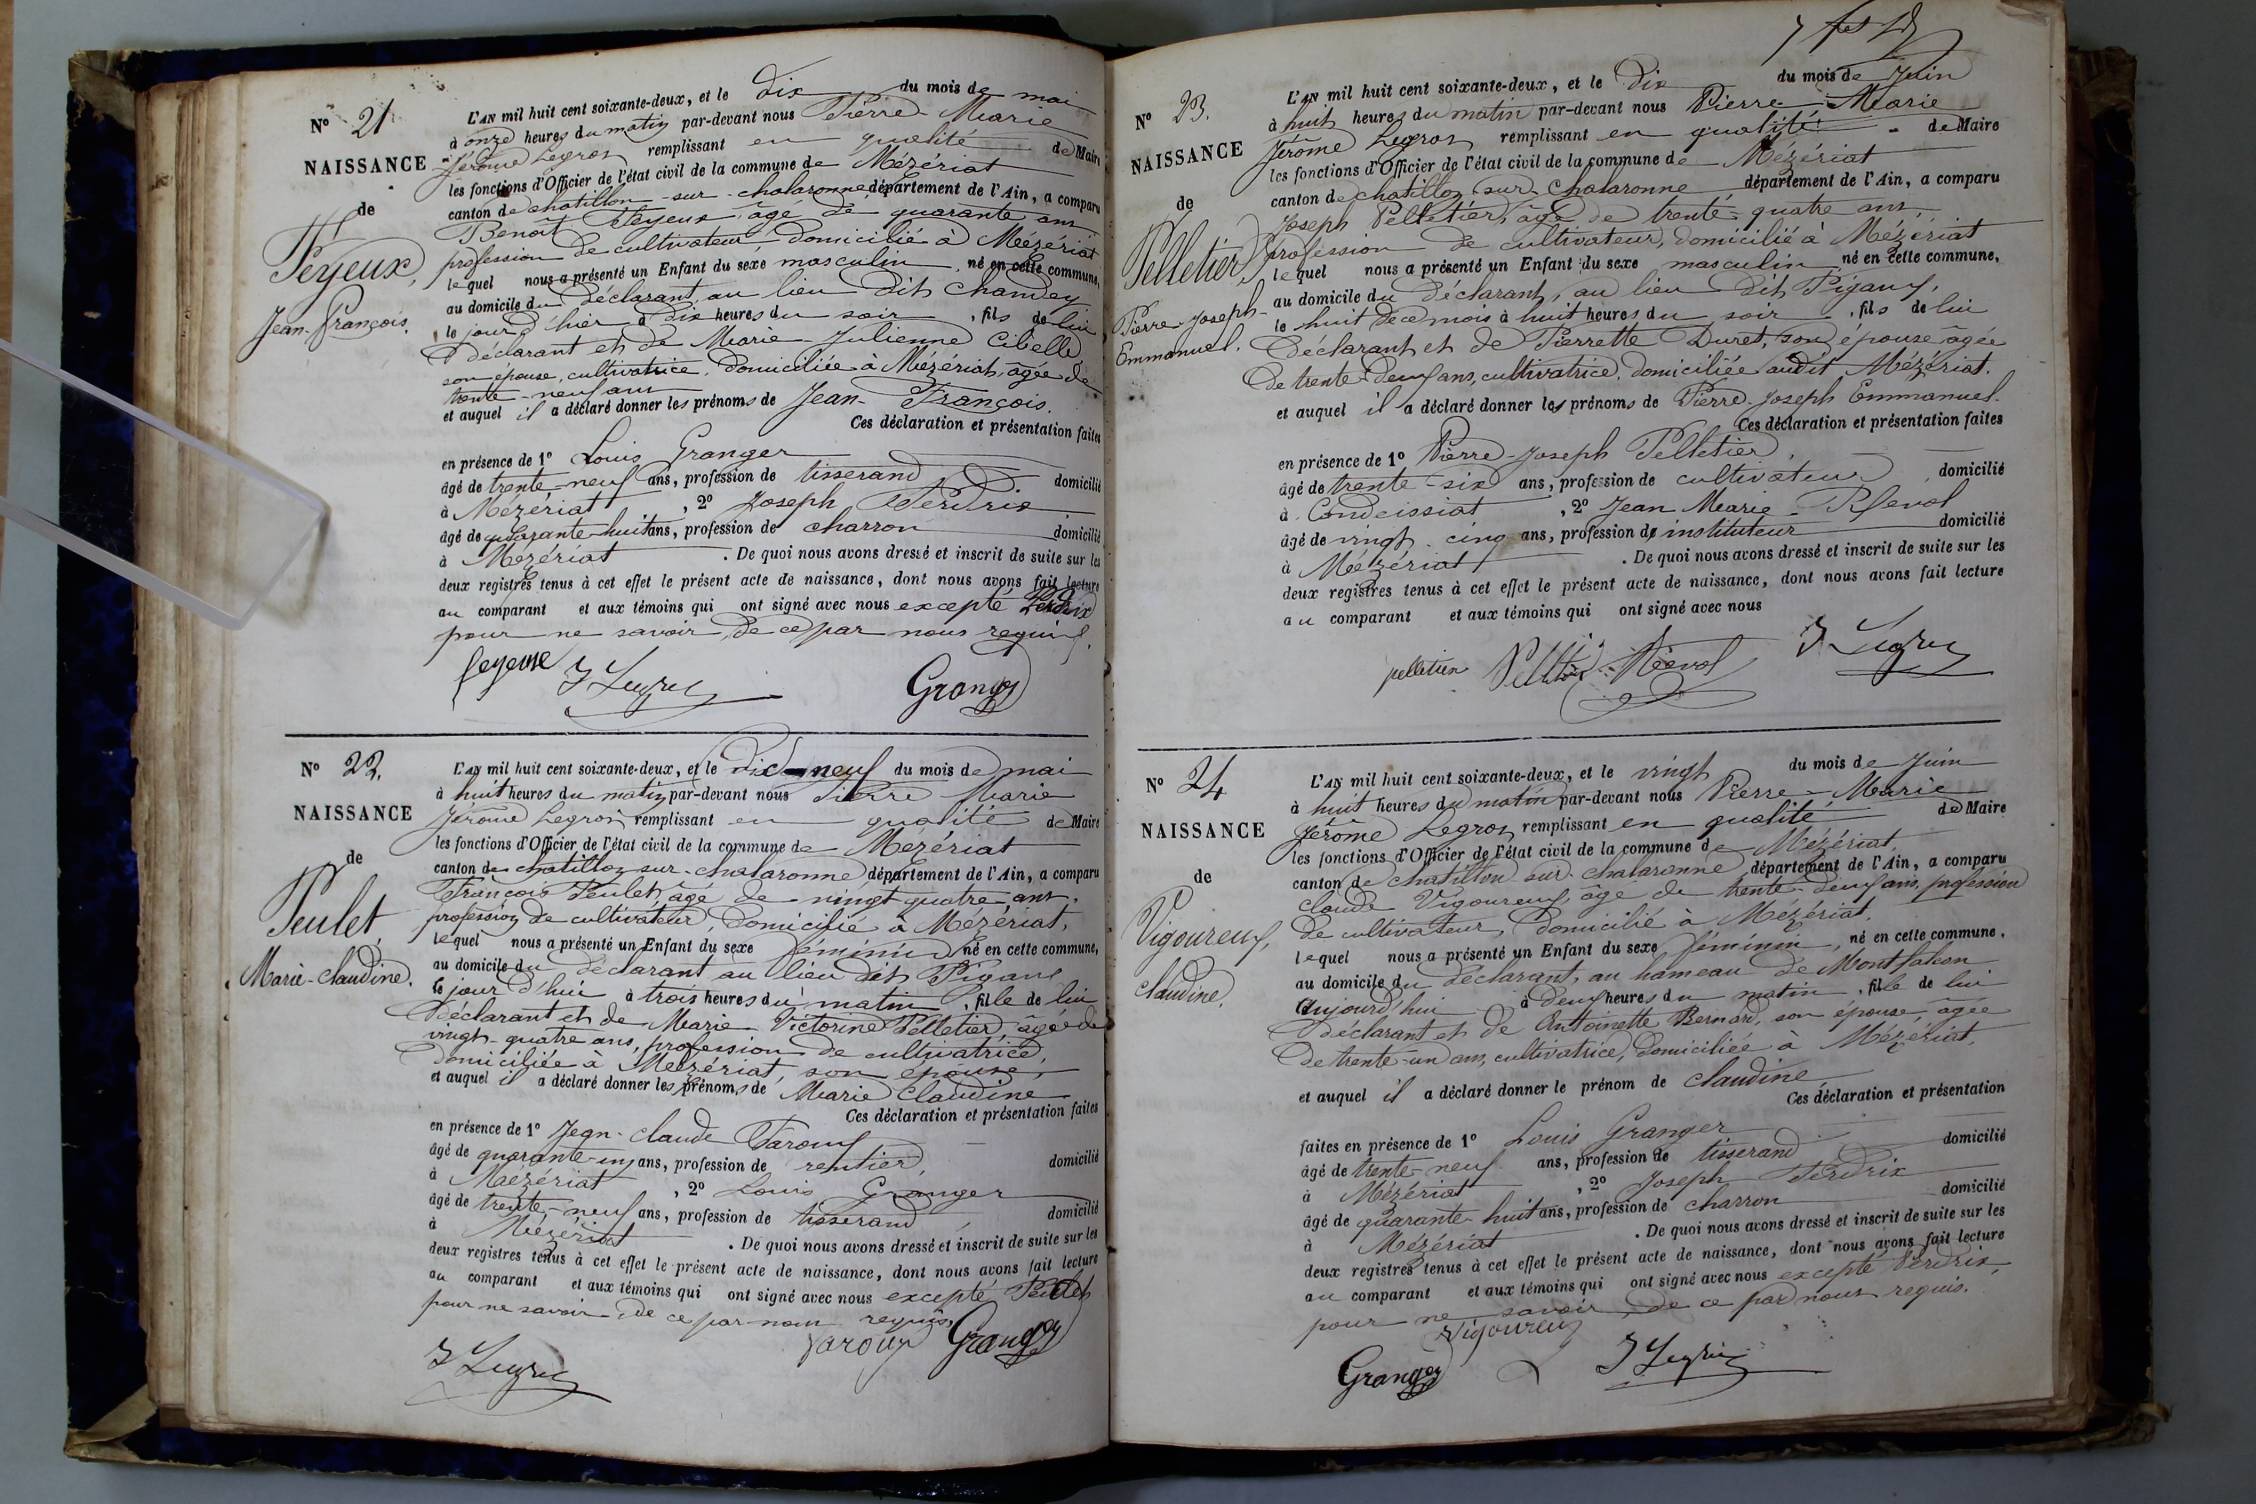 N° 21
NAISSANCE
de
Feyeux,
Jean-François.
L'AN mil huit cent soixante-deux, et le dix du mois de mai
à onze heures du matin par-devant nous Pierre Marie
Jérôme Legros remplissant en qualité de Maire
les fonctions d'Officier de l'état civil de la commune de Mézériat
canton de chatillon-sur-chalaronne département de l'Ain, a comparu
Benoît Feyeux, âgé de quarante ans
profession de cultivateur, domicilié à Mézériat
lequel nous a présenté un Enfant du sexe masculin, né en cette commune,
au domicile du déclarant, au lieu dit chandey
le jour d'hier à dix heures du soir, fils de lui
déclarant et de Marie-Julienne Cibelle,
son épouse, cultivatrice, domiciliée à Mézériat, âgée de
trente-neuf ans
et auquel il a déclaré donner les prénoms de Jean-François.
Ces déclaration et présentation faites
en présence de 1° Louis Granger
âgé de trente-neuf ans, profession de tisserand domicilié
à Mézériat, 2° Joseph Perdrix
âgé de quarante-huit ans, profession de charron domicilié
à Mézériat. De quoi nous avons dressé et inscrit de suite sur les
deux registres tenus à cet effet le présent acte de naissance, dont nous avons fait lecture
au comparant et aux témoins qui ont signé avec nous excepté Perdrix
pour ne savoir, de ce par nous requis.
feyeuse J Legros Granger
N° 22.
NAISSANCE
de
Peulet,
Marie-Claudine.
L'AN mil huit cent soixante-deux, et le dix-neuf du mois de mai
à huit heures du matin par-devant nous Pierre Marie
Jérôme Legros remplissant en qualité de Maire
les fonctions d'Officier de l'état civil de la commune de Mézériat
canton de chatillon-sur-chalaronne département de l'Ain, a comparu
François Peulet, âgé de vingt quatre ans,
profession de cultivateur, domicilié à Mézériat,
lequel nous a présenté un Enfant du sexe féminin né en cette commune,
au domicile du déclarant au lieu dit
le jour d'hui à trois heures du matin, fille de lui
déclarant et de Marie Victorine Pelletier, âgée de
vingt-quatre ans, profession de cultivatrice,
domiciliée à Mézériat, son épouse,
et auquel il a déclaré donner les prénoms de Marie Claudine
Ces déclaration et présentation faites
en présence de 1° Jean-Claude Faroux
âgé de quarante-un ans, profession de rentier, domicilié
à Mézériat, 2° Louis Granger
âgé de trente-neuf ans, profession de tisserand, domicilié
à Mézériat. De quoi nous avons dressé et inscrit de suite sur les
deux registres tenus à cet effet le présent acte de naissance, dont nous avons fait lecture
au comparant et aux témoins qui ont signé avec nous excepté Peulet
pour ne savoir, de ce par nous requis.
faroux Granger
J Legros
N° 23.
NAISSANCE
de
Pelletier,
Pierre-Joseph-
Emmanuel.
L'AN mil huit cent soixante-deux, et le dix du mois de Juin
à huit heures du matin par-devant nous Pierre-Marie
Jérôme Legros remplissant en qualité de Maire
les fonctions d'Officier de l'état civil de la commune de Mézériat
canton de chatillon sur Chalaronne département de l'Ain, a comparu
Joseph Pelletier, âgé de trente-quatre ans,
profession de cultivateur, domicilié à Mézériat
lequel nous a présenté un Enfant du sexe masculin, né en cette commune,
au domicile du déclarant, au lieu dit
le huit de ce mois à huit heures du soir, fils de lui
déclarant et de Pierrette Duret, son épouse âgée
de trente-deux ans, cultivatrice, domiciliée audit Mézériat.
et auquel il a déclaré donner les prénoms de Pierre-Joseph Emmanuel.
Ces déclaration et présentation faites
en présence de 1° Pierre-Joseph Pelletier,
âgé de trente-six ans, profession de cultivateur, domicilié
à Condeissiat, 2° Jean Marie Revol
âgé de vingt-cinq ans, profession de instituteur domicilié
à Mézériat. De quoi nous avons dressé et inscrit de suite sur les
deux registres tenus à cet effet le présent acte de naissance, dont nous avons fait lecture
au comparant et aux témoins qui ont signé avec nous
pelletier Pelletier Révol J Legros
N° 24
NAISSANCE
de
Vigoureux,
Claudine.
L'AN mil huit cent soixante-deux, et le vingt du mois de Juin
à huit heures du matin par-devant nous Pierre-Marie
Jérôme Legros remplissant en qualité de Maire
les fonctions d'Officier de l'état civil de la commune de Mézériat,
canton de chatillon sur chalaronne, département de l'Ain, a comparu
Claude Vigoureux, âgé de trente-deux ans, profession
de cultivateur, domicilié à Mézériat,
lequel nous a présenté un Enfant du sexe féminin, né en cette commune,
au domicile du déclarant, au hameau de Montfalcon
Aujourd'hui à deux heures du matin, fille de lui
déclarant et de Antoinette Bernard, son épouse, âgée
de trente-un ans, cultivatrice, domiciliée à Mézériat,
et auquel il a déclaré donner le prénom de claudine
Ces déclaration et présentation
faites en présence de 1° Louis Granger
âgé de trente-neuf ans, profession de tisserand domicilié
à Mézériat, 2° Joseph Perdrix
âgé de quarante-huit ans, profession de charron domicilié
à Mézériat. De quoi nous avons dressé et inscrit de suite sur les
deux registres tenus à cet effet le présent acte de naissance, dont nous avons fait lecture
au comparant et aux témoins qui ont signé avec nous excepté Perdrix,
pour ne savoir, de ce par nous requis.
Vigoureux
Granger J Legros